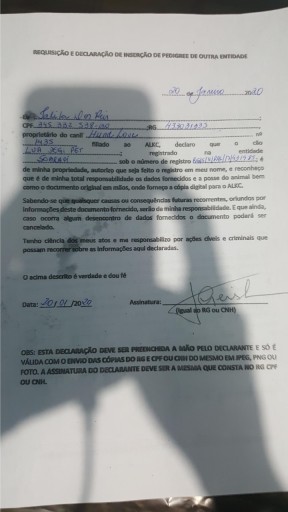 REQUISIÇÃO E DECLARAÇÃO DE INSERÇÃO DE PEDIGREE DE OUTRA ENTIDADE
20 de Janeiro 2020
Eu
CPF RG
proprietário do canil nº
filiado ao ALKC, declaro que o cão
registrado na entidade
sob o número de registro é
de minha propriedade, autorizo que seja feito o registro em meu nome, e reconheço
que é de minha total responsabilidade os dados fornecidos e a posse do animal bem
como o documento original em mãos, onde forneço a cópia digital para o ALKC.
Sabendo-se que quaisquer causas ou consequências futuras recorrentes, oriundos por
informações deste documento fornecido, serão de minha responsabilidade. E que ainda,
caso ocorra algum desmembro de dados fornecidos o documento poderá ser
cancelado.
Tenho ciência dos meus atos e me responsabilizo por ações cíveis e criminais que
possam recorrer sobre as informações aqui declaradas.
O acima descrito é verdade e dou fé
Data: 20/01/2020 Assinatura:
(Igual ao RG ou CNH)
OBS: ESTA DECLARAÇÃO DEVE SER PREENCHIDA A MÃO PELO DECLARANTE E SÓ É
VÁLIDA COM O ENVIO DAS CÓPIAS DO RG E CPF OU CNH DO MESMO EM JPEG, PNG OU
FOTO. A ASSINATURA DO DECLARANTE DEVE SER A MESMA QUE CONSTA NO RG CPF
OU CNH.